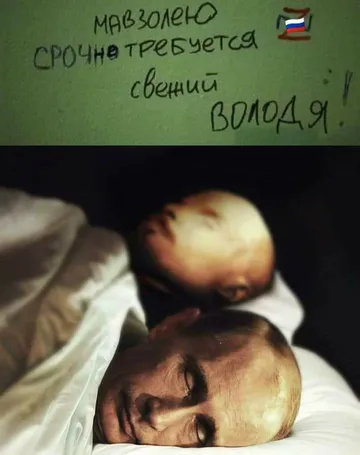 МАВЗОЛЕЮ
СРОЧНО ТРЕБУЕТСЯ
свежий
ВОЛОДЯ!